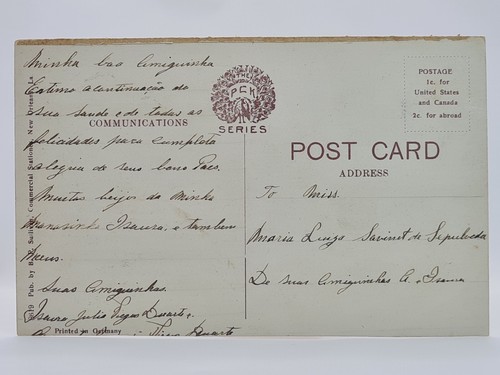 Minha boa Amiguinha
Estimo a continuação da
sua saude e de todas as
felicidades para completa
alegria de seus bons Paes.
Muitos beijos da minha
Isaura, e tambem
meus.
Suas Amiguinhas.
Isaura Julia Viegas Duarte e
Duarte
COMMUNICATIONS
THE
PCK
SERIES
POST CARD
ADDRESS
POSTAGE
1c. for
United States
and Canada
2c. for abroad
To Miss.
Maria Luiza Sabinet de Sepulveda
De suas Amiguinhas A. e Isaura
Pub. by Commercial Stationer, New Orleans, La
Printed in Germany